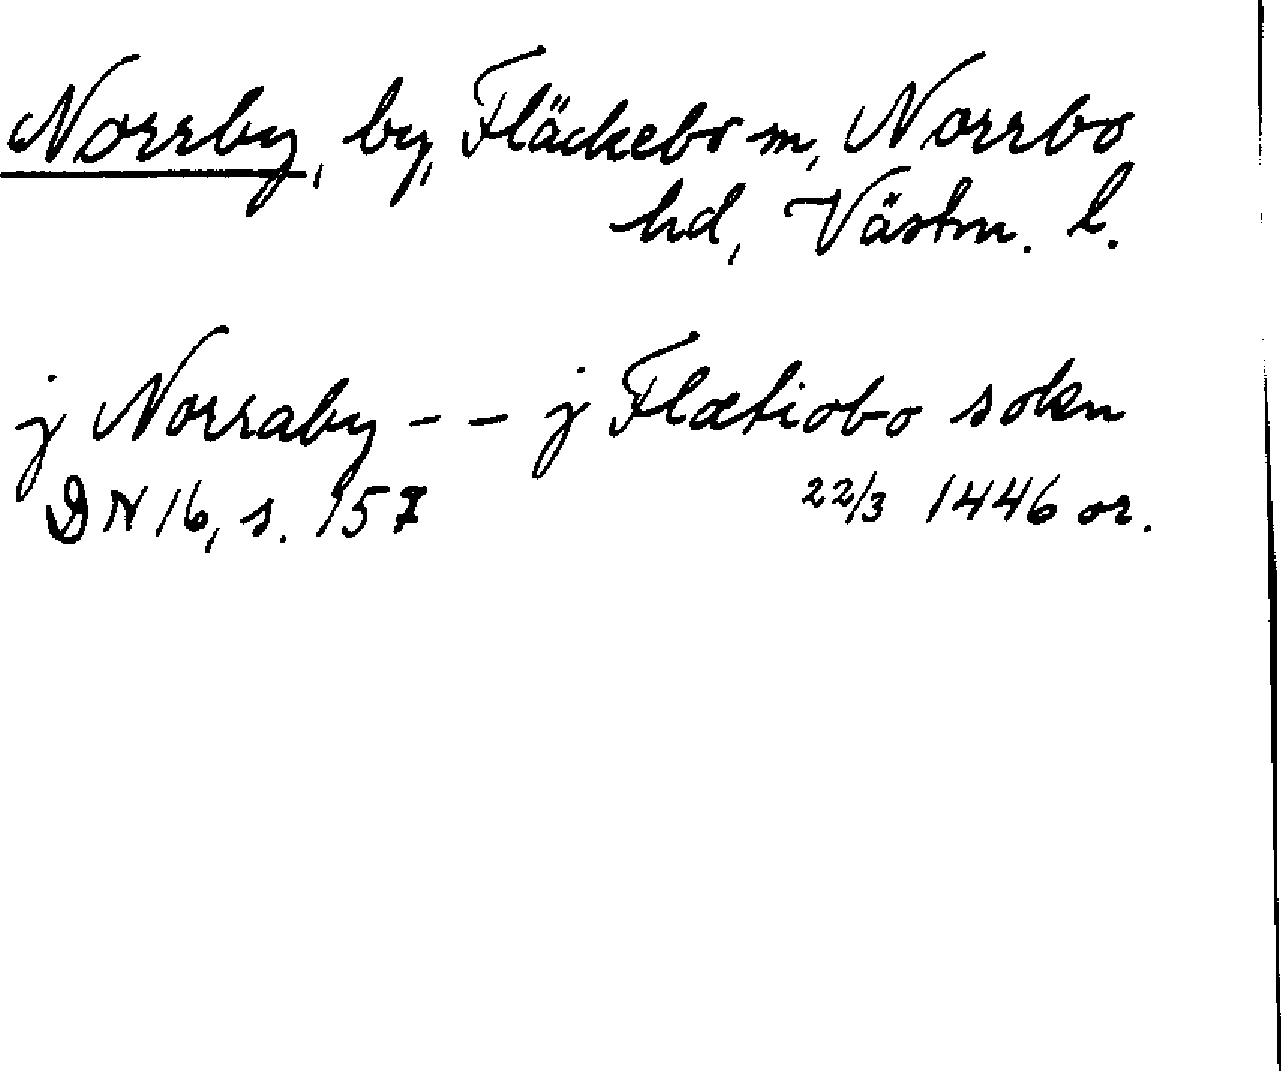 Norrby, by, Fläckebo sn, Norrbo
hd, Västm. l.
j Norraby - - j Flætiobo sokn
DN 16, s. 157 22/3 1446 or.